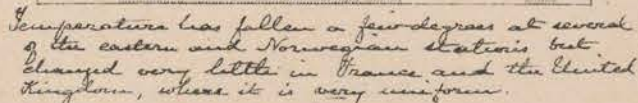 Temperature has fallen a few degrees at several
of the eastern and Norwegian stations but
changed very little in France and the United
Kingdom, where it is very uniform.